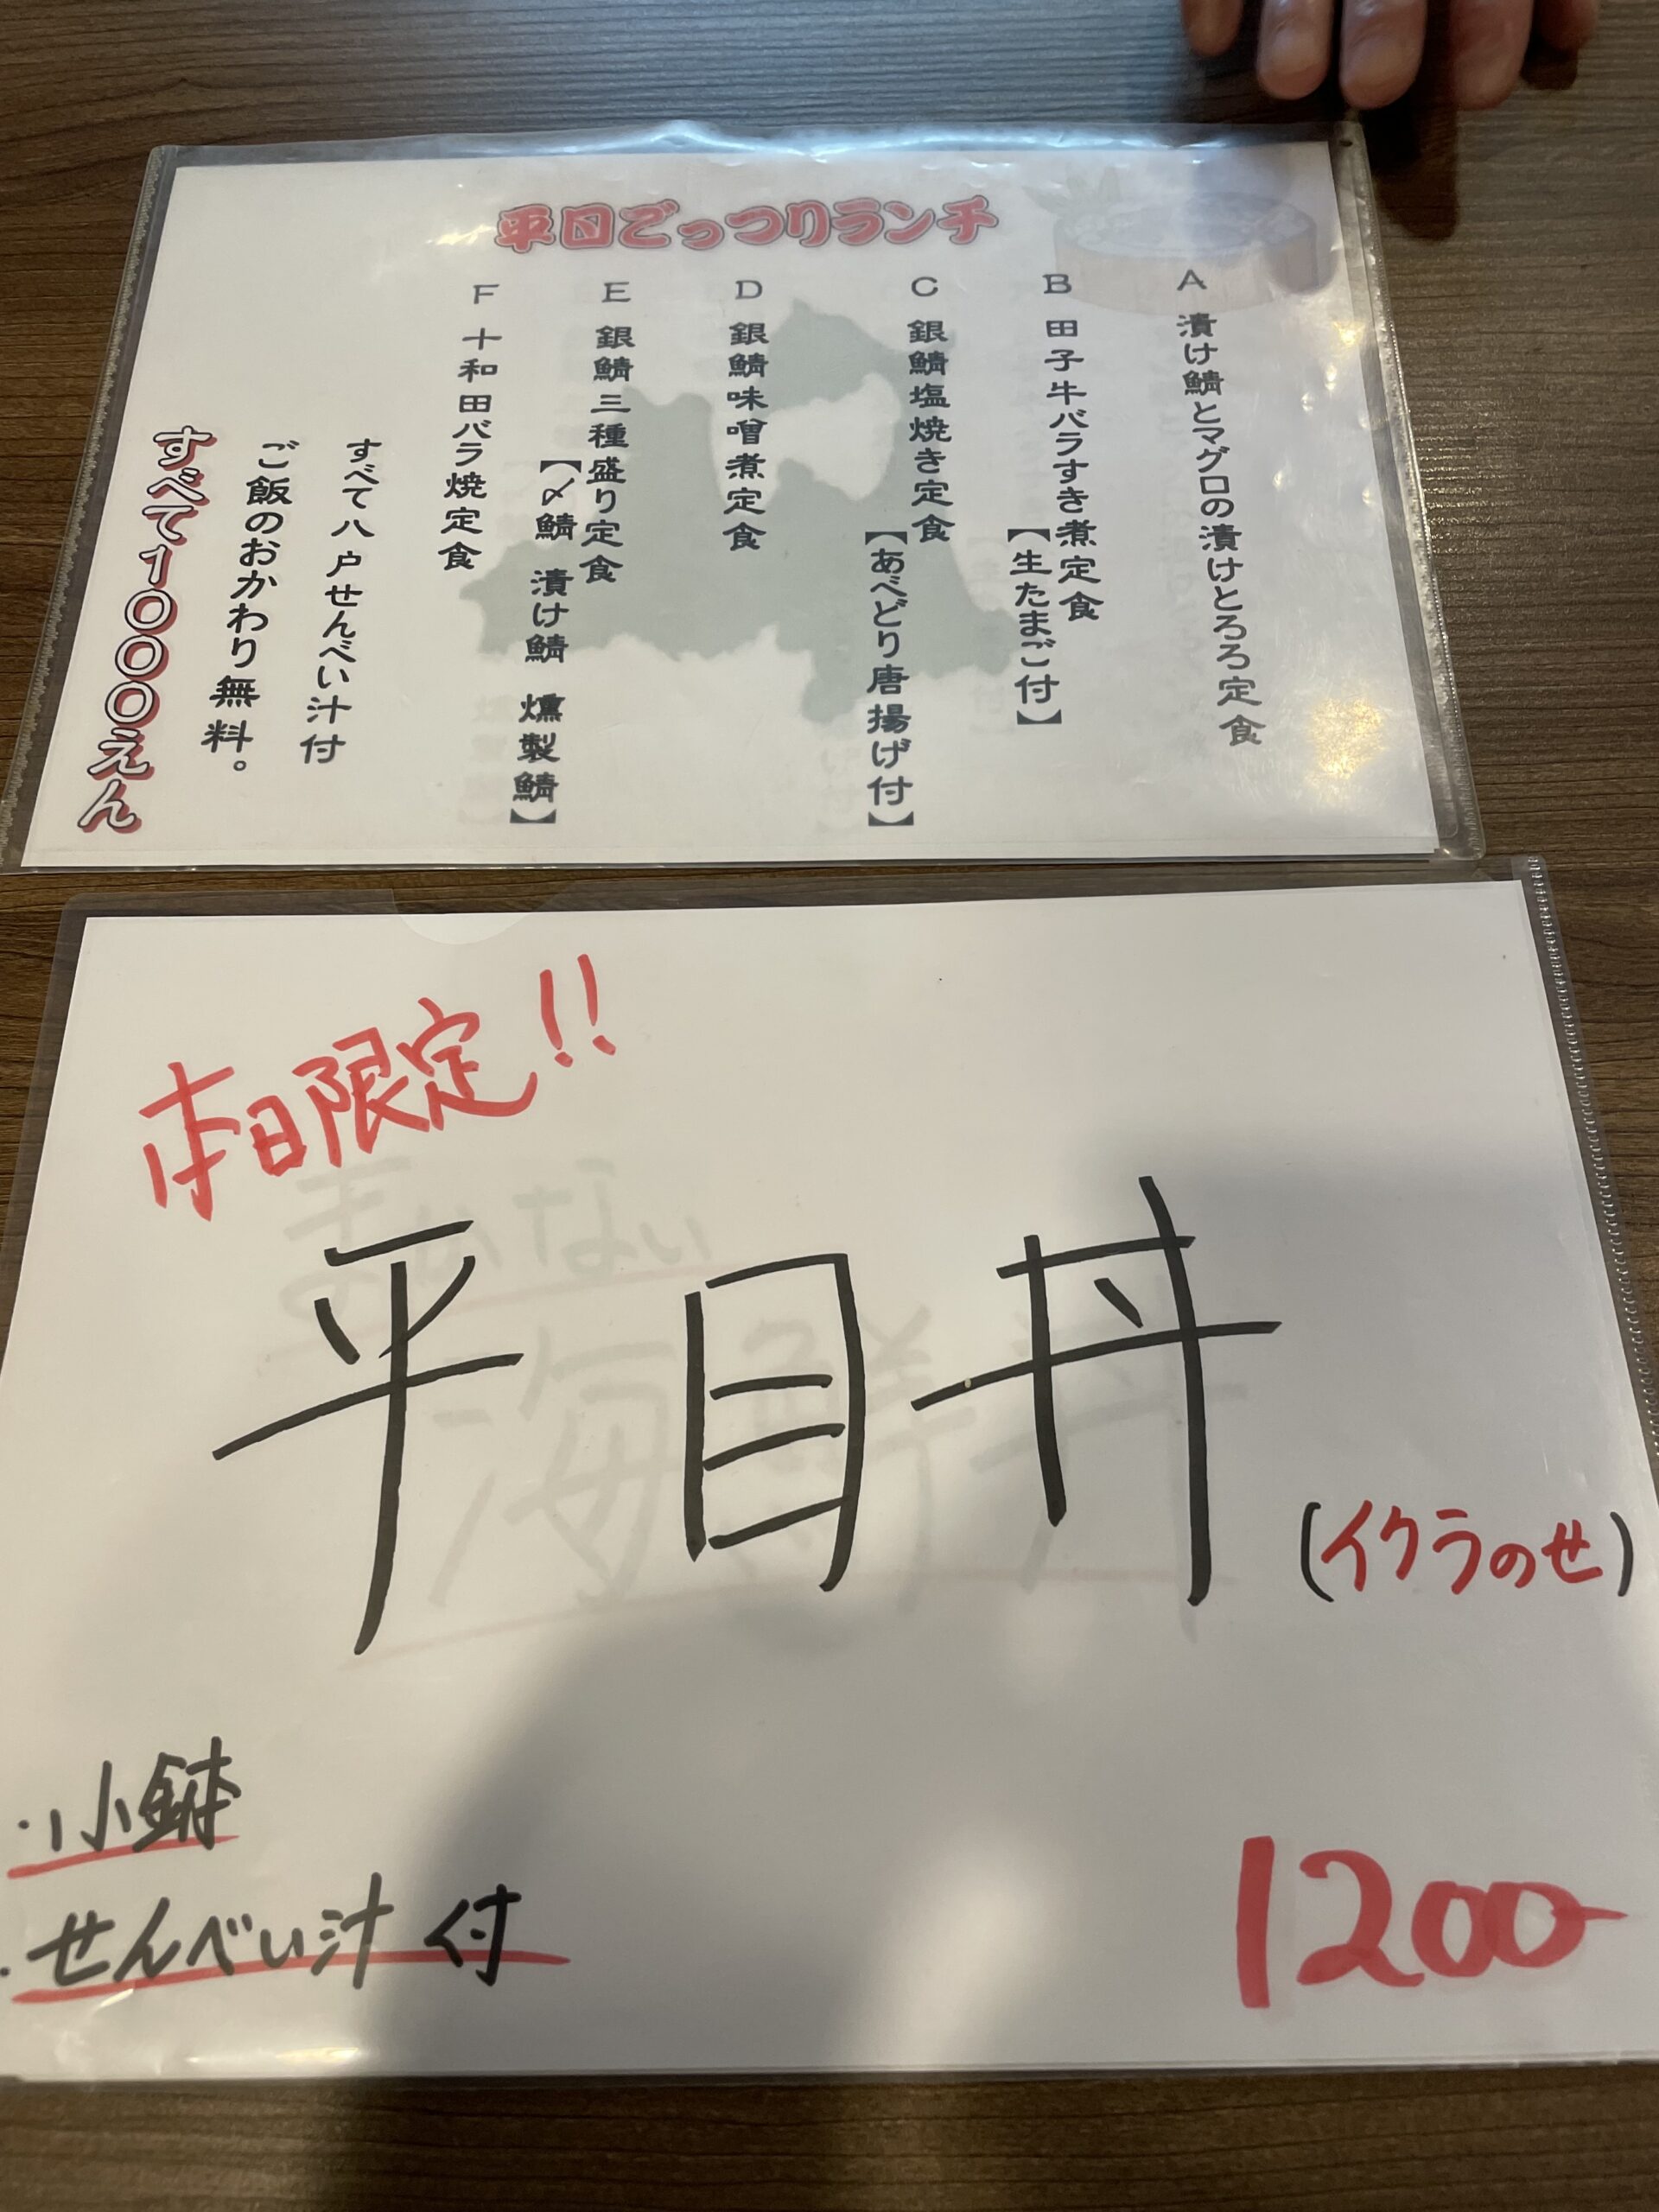 平日ごっつりランチ
A 漬け鯖とマグロの漬けとろろ定食
B 田子牛バラすき煮定食
【生たまご付】
C 銀鯖塩焼き定食
【あべどり唐揚げ付】
D 銀鯖味噌煮定食
E 銀鯖三種盛り定食
【〆鯖 漬け鯖 燻製鯖】
F 十和田バラ焼定食
すべて八戸せんべい汁付
ご飯のおかわり無料。
すべて1000えん
本日限定!!
平目丼
(イクラのせ)
・小鉢
・せんべい汁付
1200